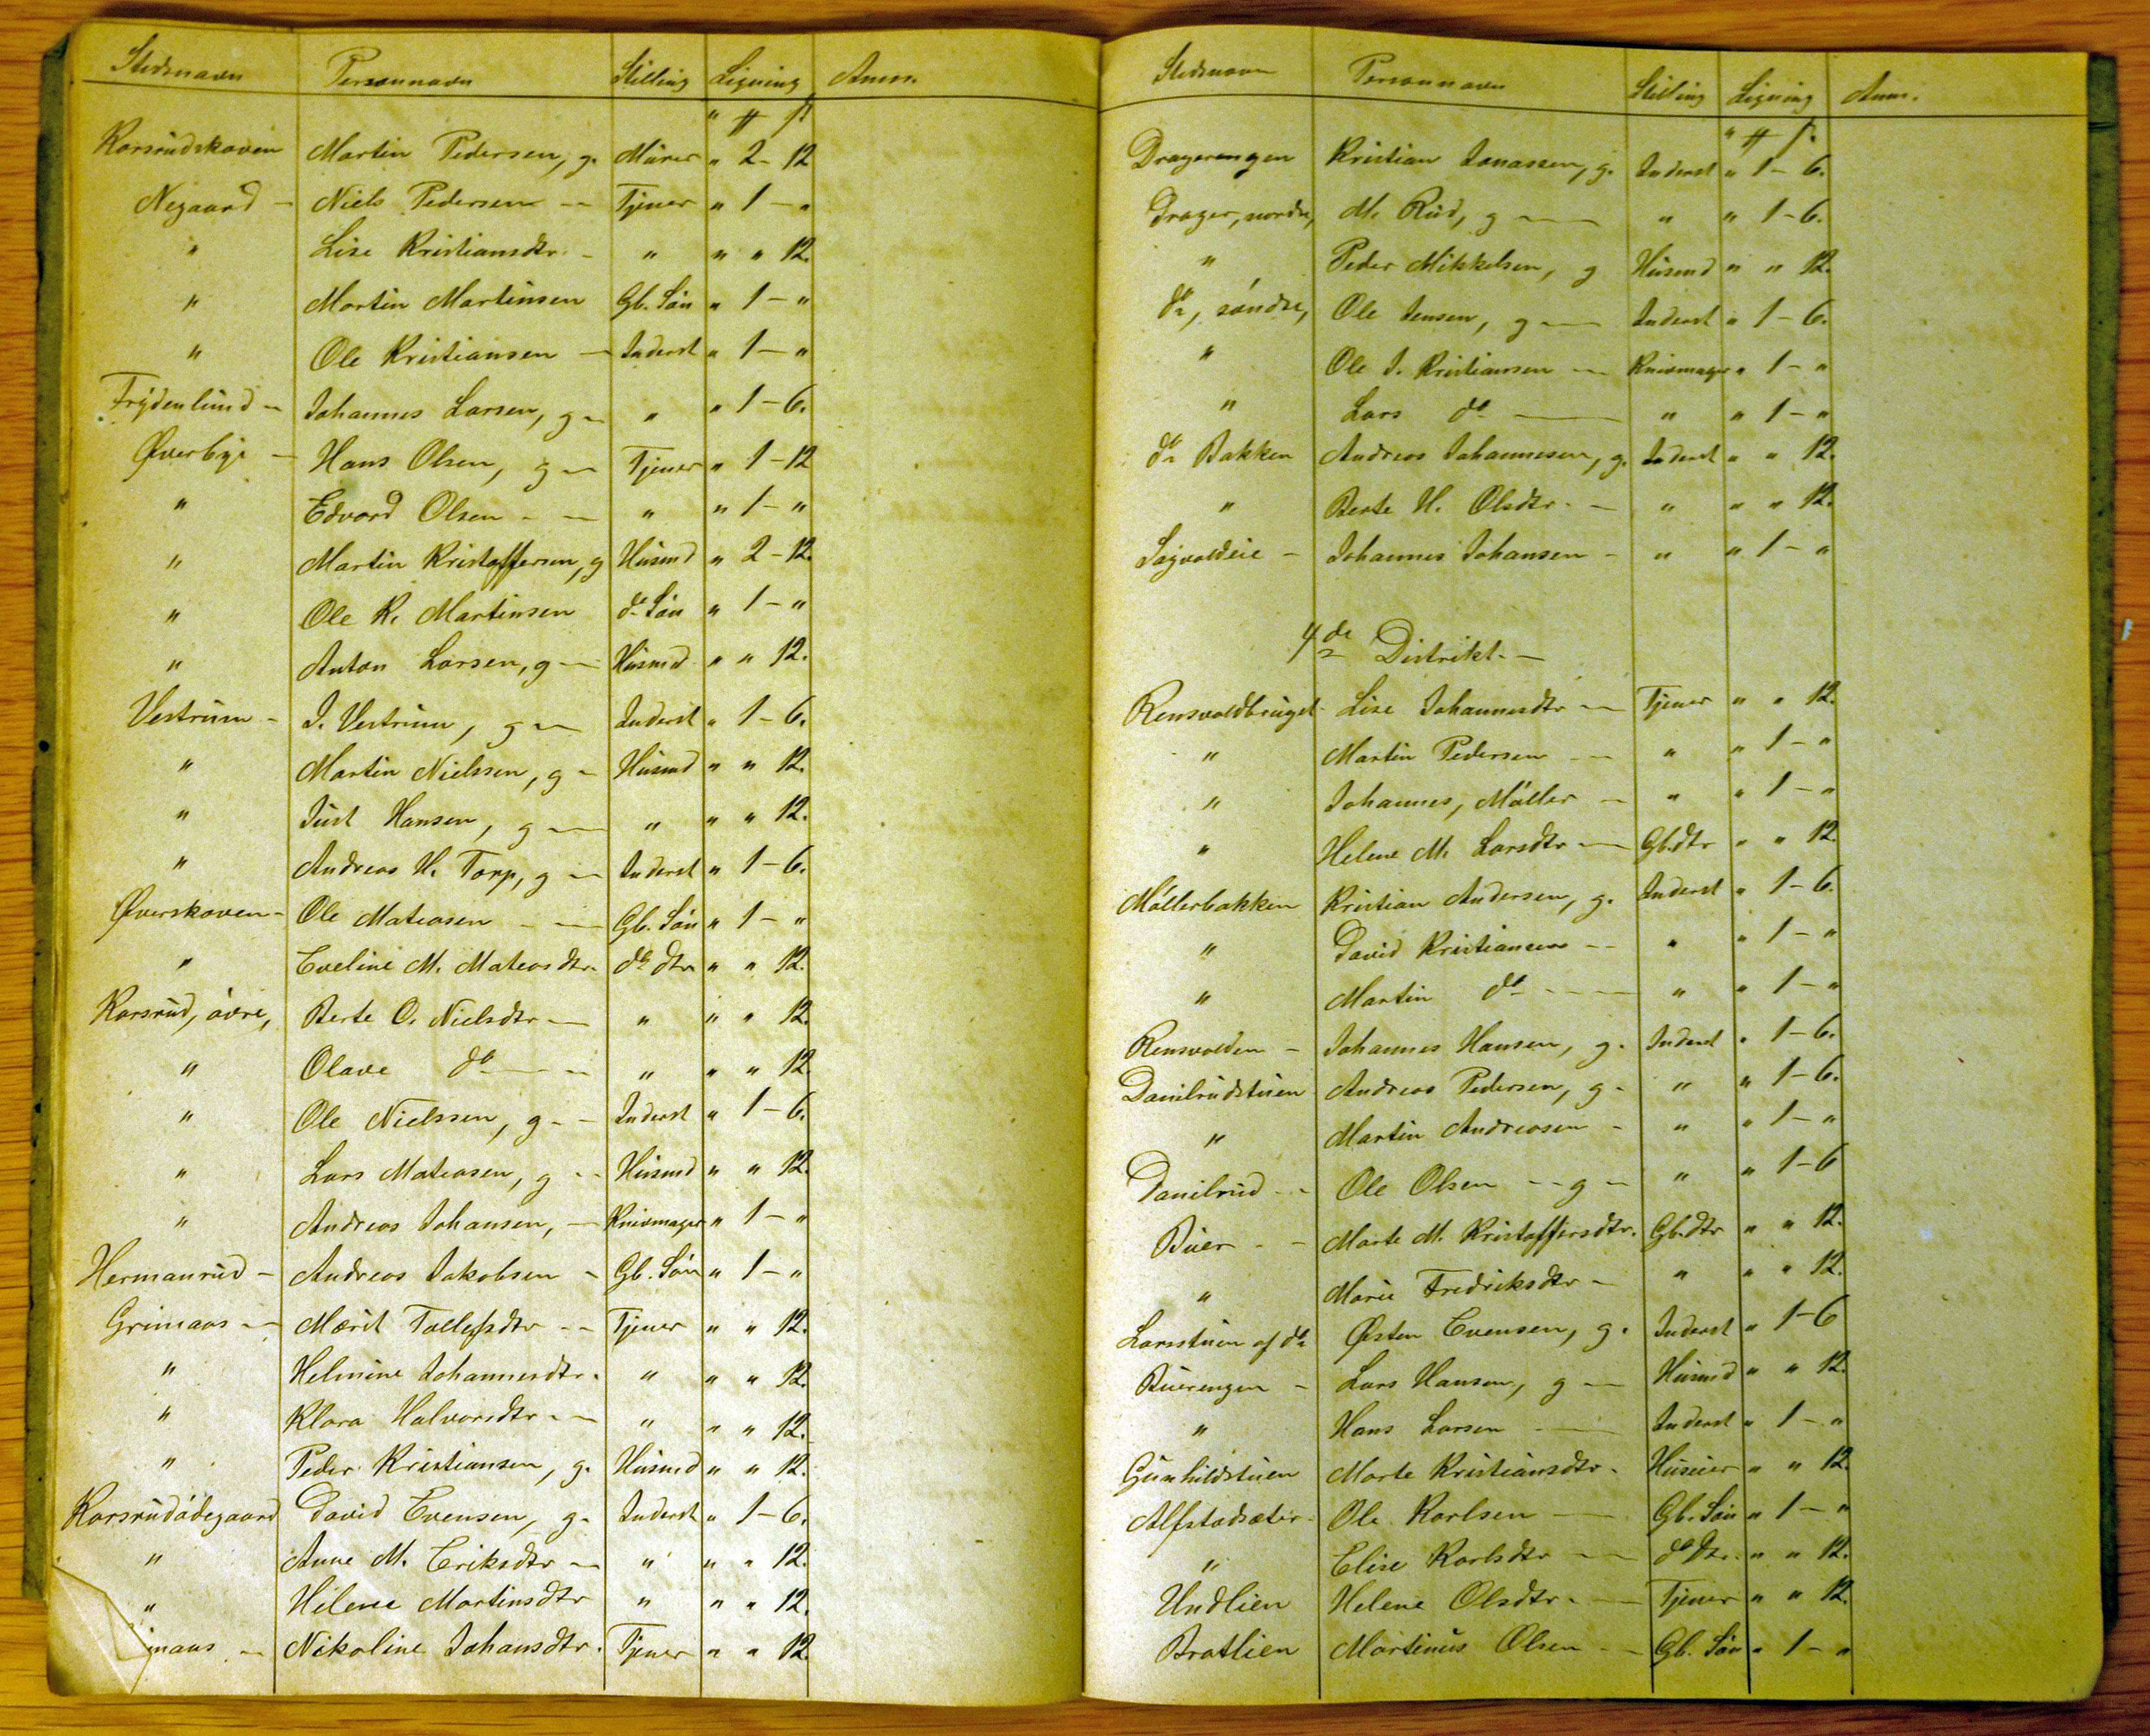 Stedsnavn Personnavn Stilling Ligning Anm.
Korsrudskoven Martin Pedersen, g. Murer " 2 - 12
Negaard - Niels Pedersen - - Tjener " 1 - "
" Lise Kristiansdtr. - " " " 12.
" Martin Martinsen Gb. Søn " 1 - "
" Ole Kristiansen - Inderst " 1 - "
Frydenlund - Johannes Larsen, g - " " 1 - 6.
Øverbye - Hans Olsen, g - Tjener " 1 - 12
" Edvard Olsen - - " " 1 - "
" Martin Kristoffersen, g Husmd " 2 - 12.
" Ole K. Martinsen do Søn " 1 - "
" Anton Larsen, g - Husmd " " 12.
Vestrum - J. Vestrum, g - Inderst " 1 - 6.
" Martin Nielssen, g - Husmd " " 12.
" Just Hansen, g - " " " 12.
" Andreas H. Torp, g - Inderst " 1 - 6.
Øverskoven - Ole Mateasen - - Gb. Søn " 1 - "
" Eveline M. Mateasdtr. do dtr " " 12.
Korsrud, øvre, Berte O. Nielsdtr - " " " 12.
" Olave do - - " " " 12.
" Ole Nielssen, g - - Inderst " 1 - 6.
" Lars Mateasen, g - - Husmd " " 12.
" Andreas Johansen, - Knivmager " 1 - "
Hermanrud - Andreas Jakobsen - Gb. Søn " 1 - "
Grimaas - Marit Tollefsdtr - - Tjener " " 12.
" Helmine Johannesdtr. " " " 12.
" Klara Halvorsdtr - - " " " 12.
" Peder Kristiansen, g. Husmd " " 12.
Korsrudødegaard David Evensen, g. Inderst " 1 - 6.
" Anne M. Eriksdtr - " " " 12.
" Helene Martinsdtr " " " 12.
imaas - Nikoline Johansdtr. Tjener " " 12.
Stedsnavn Personnavn Stilling Ligning Anm.
Dragerengen Kristian Jonassen, g. Inderst " 1 - 6.
Drager, nordre, M. Rud, g - " " 1 - 6.
" Peder Mikkelsen, g Husmd " " 12.
do, søndre, Ole Jensen, g - Inderst " 1 - 6.
" Ole J. Kristiansen - Knivmager " 1 - "
" Lars do - " " 1 - "
do Bakken Andreas Johannesen, g. Inderst " " 12.
" Berte H. Olsdtr. - " " " 12.
Sagvoldeie - Johannes Johansen - " " 1 - "
4de Distrikt. -
Rensvoldbruget Lise Johannesdtr - Tjener " " 12.
" Martin Pedersen - - " " 1 - "
" Johannes, Møller - " " 1 - "
" Helene M. Larsdtr - Gb.dtr " " 12
Møllerbakken Kristian Andersen, g. Inderst " 1 - 6.
" David Kristiansen - - " " 1 - "
" Martin do - - - " " 1 - "
Rensvolden - Johannes Hansen, g. Inderst " 1 - 6.
Danilrudstuen Andreas Pedersen, g - " " 1 - 6.
" Martin Andreasen - " " 1 - "
Danilrud - - Ole Olsen - - g - " " 1 - 6
Buer - - Marte M. Kristoffersdtr. Gb.dtr " " 12.
" Marie Fredriksdtr - " " " 12.
Larsstuen af do Østen Evensen, g. Inderst " 1 - 6
Buerengen - Lars Hansen, g - Husmd " " 12.
" Hans Larsen - Inderst " 1 - "
Gunhildstuen Marte Kristiansdtr. Huseier " " 12.
Alfstadsæter - Ole Karlsen - Gb. Søn " 1 - "
" Elise Karlsdtr - - do dtr. " " 12.
Undlien Helene Olsdtr. - Tjener " " 12.
Bratlien Martinus Olsen - - Gb. Søn " 1 - "